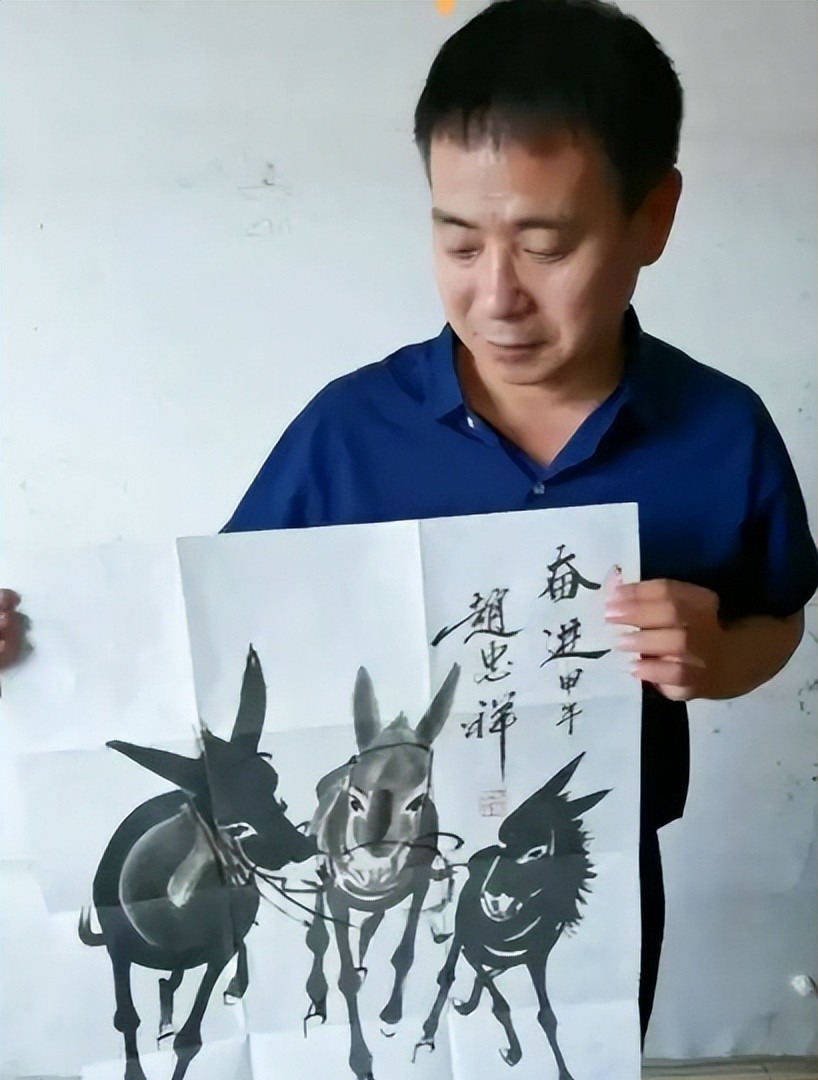 奋进甲午
趙忠祥